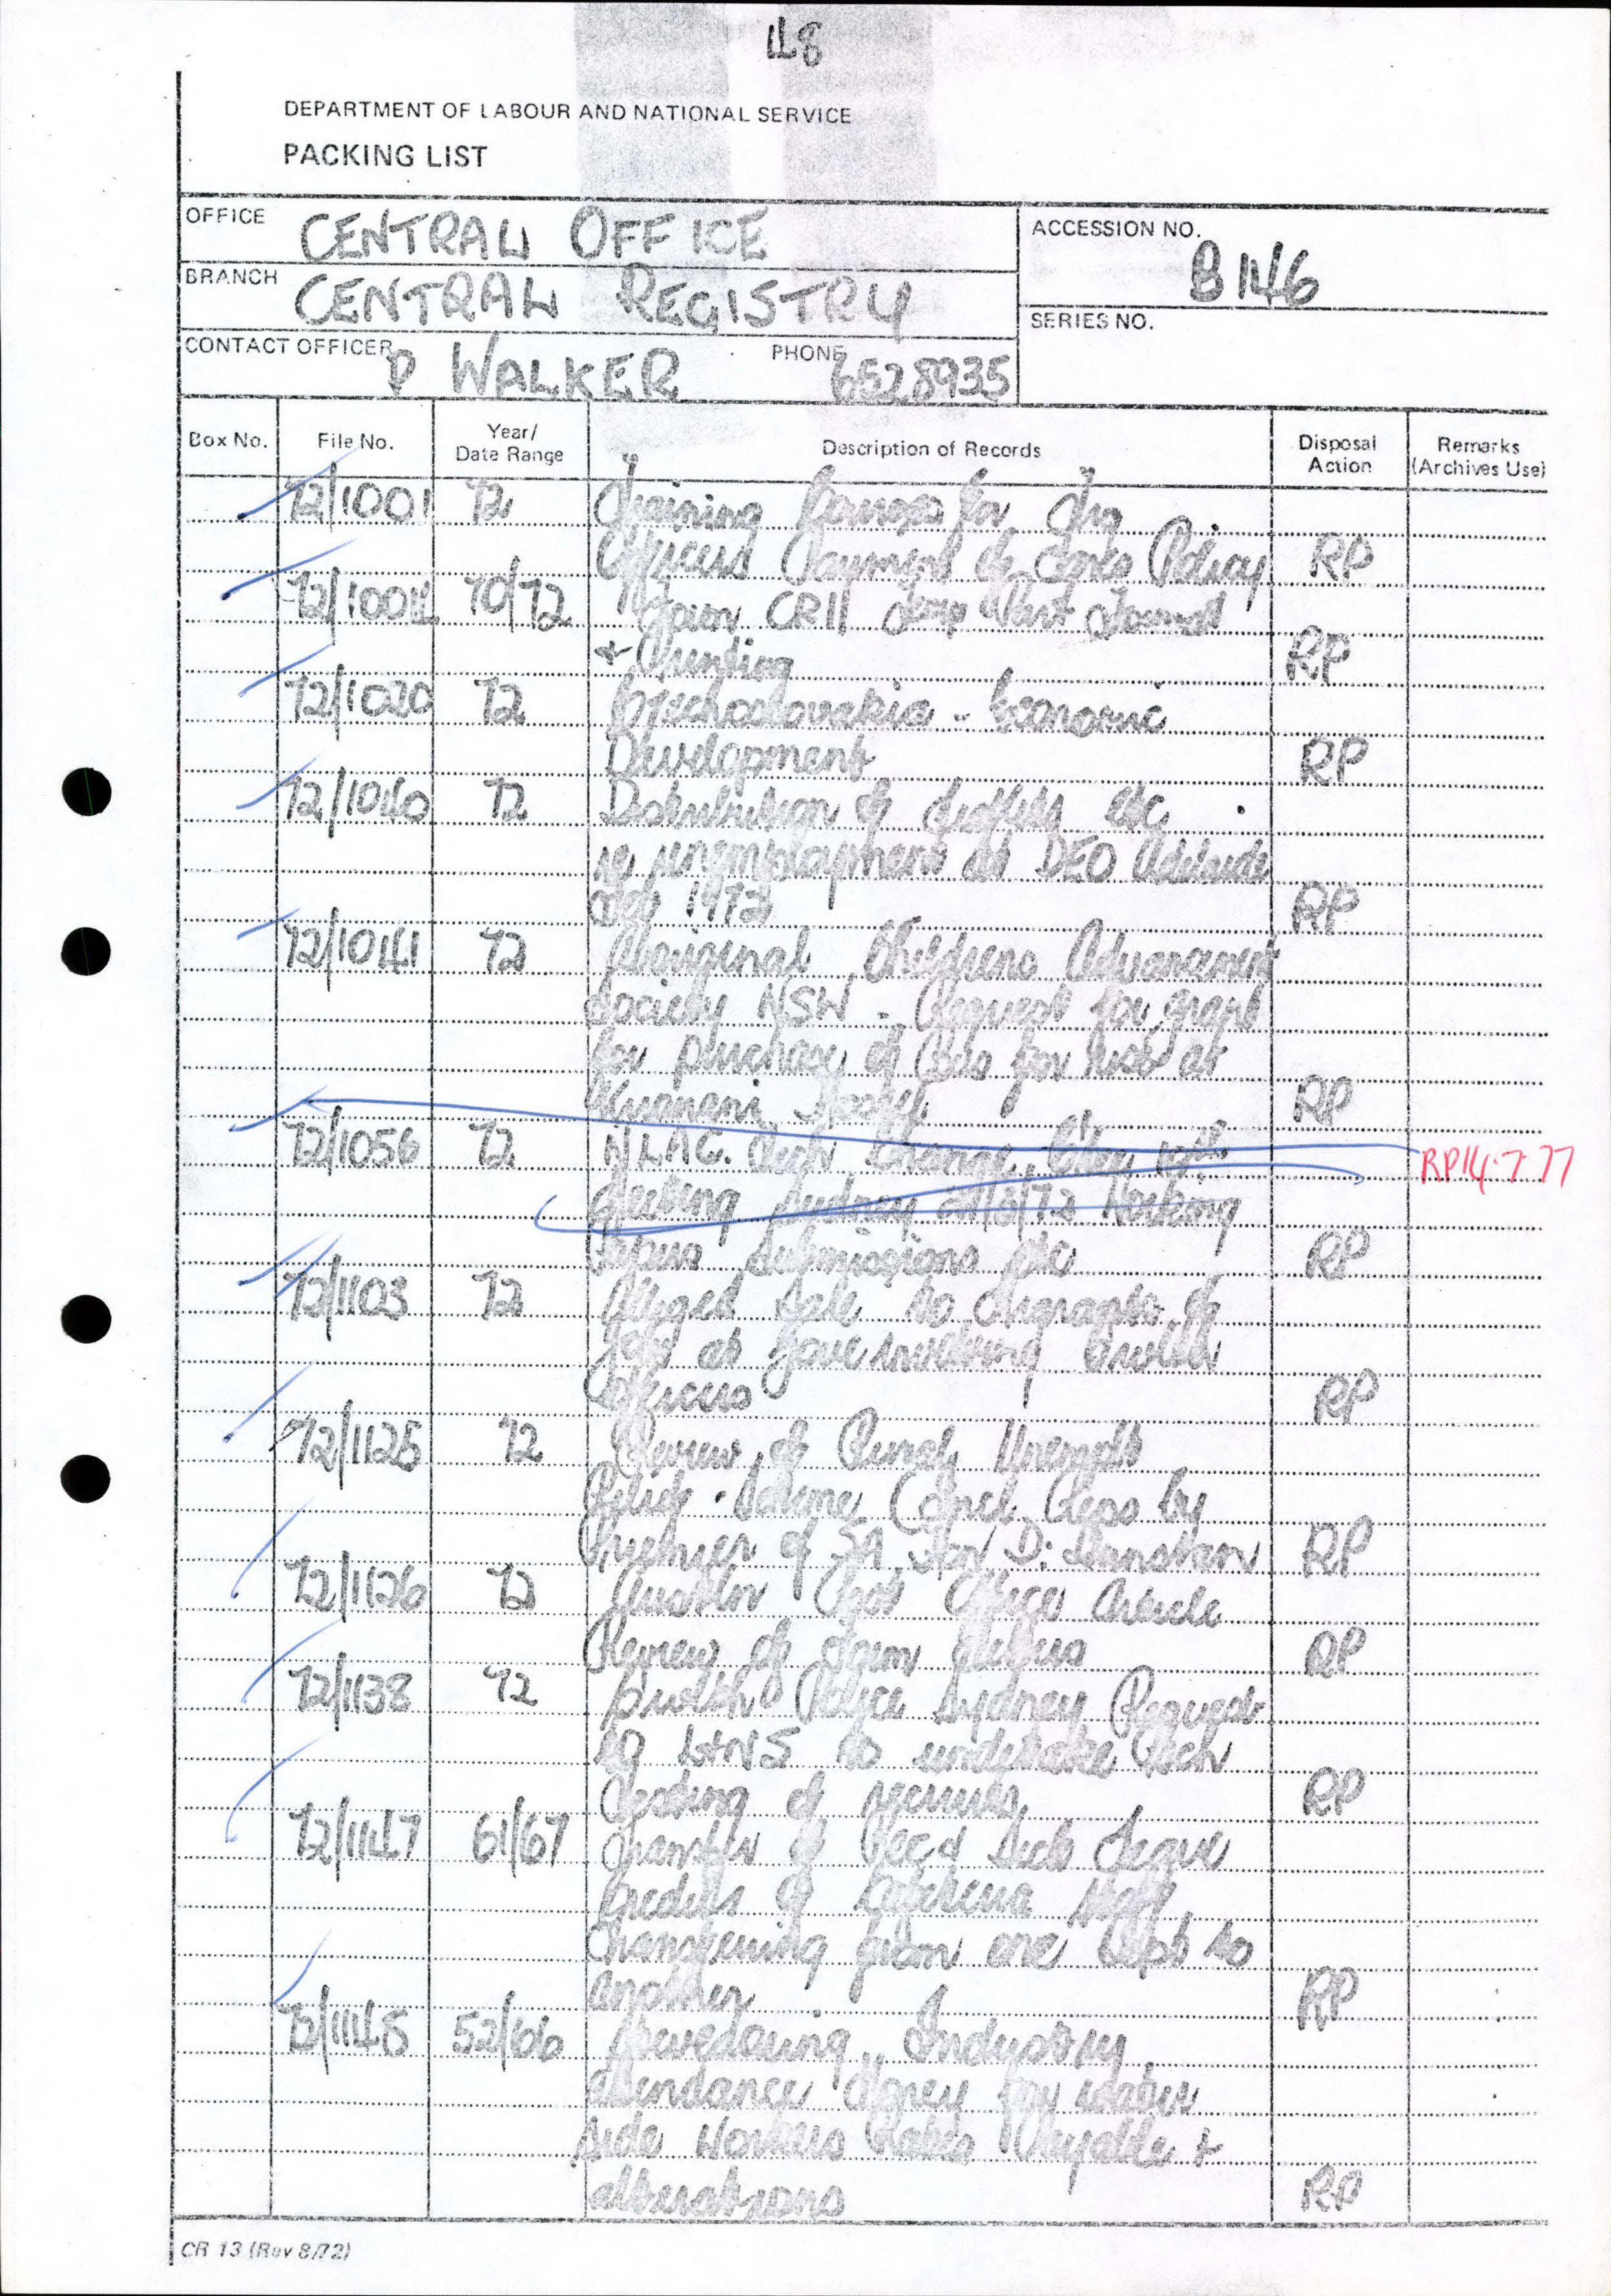 48
DEPARTMENT OF LABOUR AND NATIONAL SERVICE
PACKING LIST
OFFICE CENTRAL OFFICE
ACCESSION NO. B 146
BRANCH CENTRAL REGISTRY
SERIES NO.
CONTACT OFFICER P WALKER PHONE 6528935
Box No. File No. Year/ Date Range Description of Records Disposal Action Remarks (Archives Use)
72/1001 72 Training Courses for
Officers Payment of Policy RP
72/1004 70/72 CR11 Part
+ Printing RP
72/1020 72 Czechoslovakia - Economic
Development RP
72/1040 72 Distribution of leaflets etc
re unemployment at DEO Adelaide
1972 RP
72/1041 72 Aboriginal Childrens Advancement
Society NSW - Request for grant
for purchase of for use at
Hostel RP
72/1056 72 N.L.A.C. Tech Change Ctee
RP 14.7.77
Meeting Sydney Working
Papers Submissions etc RP
72/1103 72 Alleged Sale to Migrants of
Jobs at involving
Officers RP
72/1125 72 Review of Rural Unemplt
Relief Scheme (Incl Reps by
Premier of SA Hon D. Dunstan RP
72/1126 72 Article
Review of RP
72/1138 72 Cwlth Police Sydney Request
to L+NS to undertake
Testing of recruits RP
72/1147 61/67 Transfer of Rec & Sick Leave
Credits of Cafeteria Staff
Transferring from one Dept to
another RP
72/1148 52/66 Stevedoring Industry
Attendance Money for water
side workers Rates Payable +
alterations RP
CR 13 (Rev 8/72)